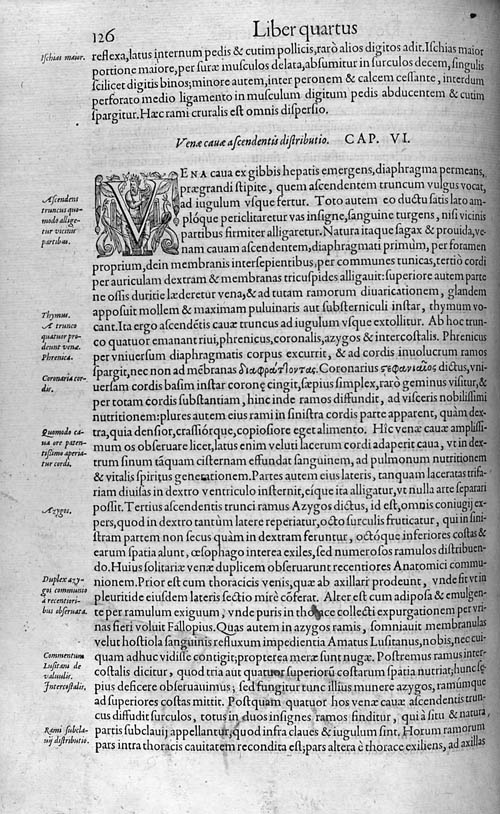 126
Liber quartus
Ischias maior.
reflexa, latus internum pedis & cutim pollicis, rarò alios digitos adit. Ischias maior
portione maiore, per suræ musculos delata, absumitur in surculos decem, singulis
scilicet digitis binos; minore autem, inter peronem & calcem cessante, interdum
perforato medio ligamento in musculum digitum pedis abducentem & cutim
spargitur. Hæc rami cruralis est omnis dispersio.
Venæ cauæ ascendentis distributio. CAP. VI.
VENA caua ex gibbis hepatis emergens, diaphragma permeans,
prægrandi stipite, quem ascendentem truncum vulgus vocat,
Ascendens
truncus quo-
modo allige-
tur vicinis
partibus.
ad iugulum vsque fertur. Toto autem eo ductu satis lato am-
plóque periclitaretur vas insigne, sanguine turgens, nisi vicinis
partibus firmiter alligaretur. Natura itaque sagax & prouida, ve-
nam cauam ascendentem, diaphragmati primùm, per foramen
proprium, dein membranis intersepientibus, per communes tunicas, tertiò cordi
per auriculam dextram & membranas tricuspides alligauit: superiore autem parte
ne ossis duritie læderetur vena, & ad tutam ramorum diuaricationem, glandem
apposuit mollem & maximam puluinaris aut substerniculi instar, thymum vo-
Thymus.
A trunco
quatuor pro-
deunt venæ.
Phrenica.
cant. Ita ergo ascendẽtis cauæ truncus ad iugulum vsque extollitur. Ab hoc trun-
co quatuor emanant riui, phrenicus, coronalis, azygos & intercostalis. Phrenicus
per vniuersum diaphragmatis corpus excurrit, & ad cordis inuolucrum ramos
spargit, nec non ad mẽbranas διαφράττοντας. Coronarius στεφανιαῖος dictus, vni-
Coronaria cor-
dis.
uersam cordis basim instar coronę cingit, sæpius simplex, rarò geminus visitur, &
per totam cordis substantiam, hinc inde ramos diffundit, ad visceris nobilissimi
nutritionem: plures autem eius rami in sinistra cordis parte apparent, quàm dex-
tra, quia densior, crassiórque, copiosiore eget alimento. Hîc venæ cauæ amplissi-
Quomodo ca-
ua ore paten-
tissimo aperia-
tur cordi.
mum os obseruare licet, latus enim veluti lacerum cordi adaperit caua, vt in dex-
trum sinum tãquam cisternam effundat sanguinem, ad pulmonum nutritionem
& vitalis spiritus generationem. Partes autem eius lateris, tanquam laceratas trifa-
riam diuisas in dextro ventriculo insternit, eíque ita alligatur, vt nulla arte separari
Azygos.
possit. Tertius ascendentis trunci ramus Azygos dictus, id est, omnis coniugij ex-
pers, quod in dextro tantùm latere reperiatur, octo surculis fruticatur, qui in sini-
stram partem non secus quàm in dextram feruntur, octóque inferiores costas &
earum spatia alunt, œsophago interea exiles, sed numerosos ramulos distribuen-
do. Huius solitariæ venæ duplicem obseruarunt recentiores Anatomici commu-
Duplex azy-
gos communio
à recentiori-
bus obseruata.
nionem. Prior est cum thoracicis venis, quæ ab axillari prodeunt, vnde fit vt in
pleuritide eiusdem lateris sectio mirè cõferat. Alter est cum adiposa & emulgen-
te per ramulum exiguum, vnde puris in thorace collecti expurgationem per vri-
nas fieri voluit Fallopius. Quas autem in azygos ramis, somniauit membranulas
velut hostiola sanguinis refluxum impedientia Amatus Lusitanus, nobis, nec cui-
Commentum
Lusitani de
valuulis.
quam adhuc vidisse contigit; propterea meræ sunt nugæ. Postremus ramus inter-
costalis dicitur, quod tria aut quatuor superiorũ costarum spatia nutriat; hunc sę-
Intercostalis.
pius deficere obseruauimus; sed fungitur tunc illius munere azygos, ramúmque
ad superiores costas mittit. Postquam quatuor hos venæ cauæ ascendentis trun-
cus diffudit surculos, totus in duos insignes ramos finditur, qui à situ & natura,
Rami subcla-
uij distributio.
partis subclauij appellantur, quod infra claues & iugulum sint. Horum ramorum
pars intra thoracis cauitatem recondita est; pars altera è thorace exiliens, ad axillas